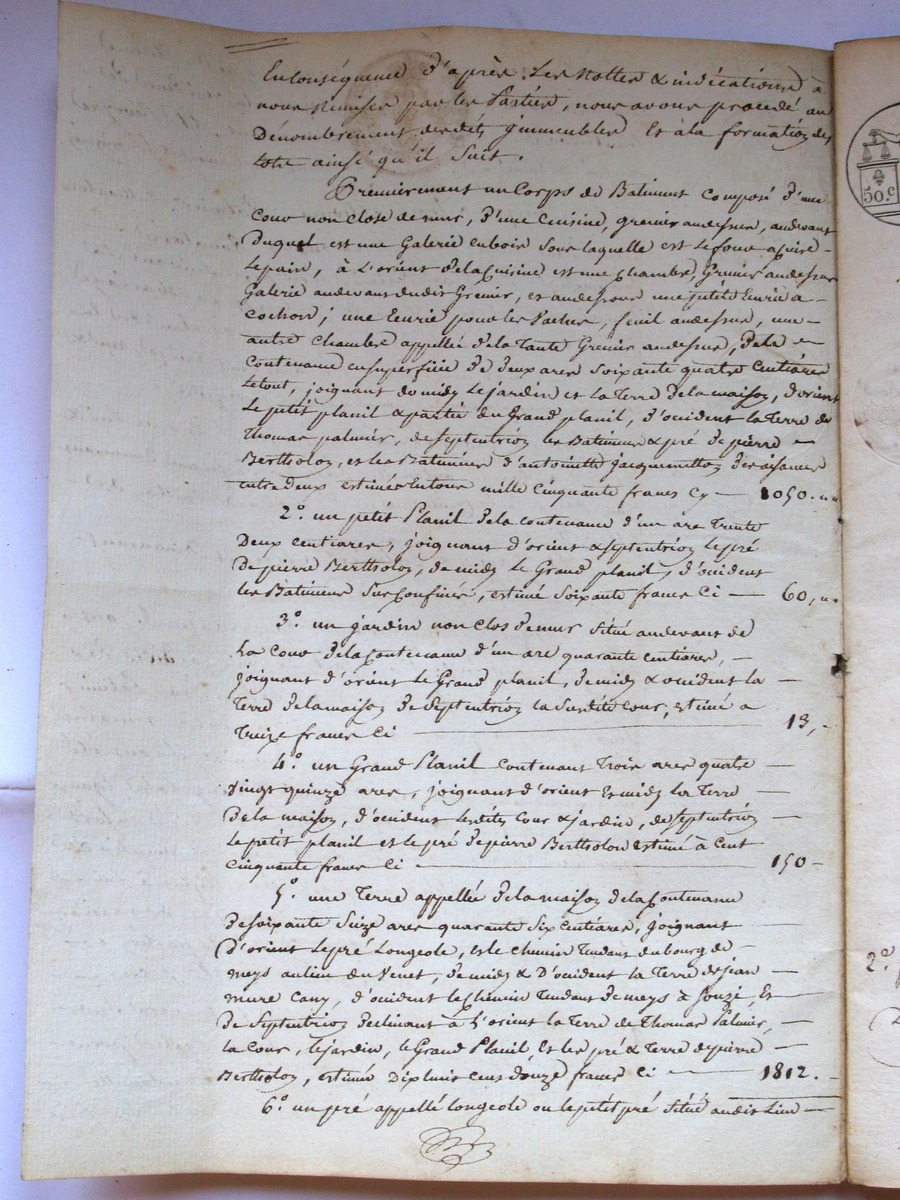 En Conséquence d'après Les Nottes & indications à
nous Remises par les Parties, nous avons procédé au
Dénombrement desdits jmmeubles Et à la formation des
lots ainsi qu'il suit.
Premierement un Corps de Batiment Composé d'une
Cour non Close de murs, d'une Cuisine, grenier audessus, audevant
Duquel est une Galerie en bois sous laquelle est le four a Cuire
le pain, à L'orient de la Cuisine est une chambre, Grenier audessus
Galerie audevant dudit Grenier, et audessous une petite Ecurie a
Cochons; une Ecurie pour les Vaches, fenil audessus, une
autre Chambre appellée de la Tante Grenier audessus, de la
Contenance en superficie de deux ares soixante quatre Centiares
Le tout, joignant du midy le jardin et la Terre de la maison, d'orient
Le petit planil & partie du Grand planil, d'occident la Terre de
Thomas palmier, de septentrion les Batimens & pré de pierre
Bertholon, et les Batimens d'antoinette jacquemetton des aisances
entre deux estimés Entour mille Cinquante francs Cy 1050. "
2.º un petit Planil de la Contenance d'un are Trente
Deux Centiares, joignant d'orient & septentrion le pré
De pierre Bertholon, de midy le Grand planil, d'occident
les Batimens sus Confinés, estimé soixante francs Ci 60, "
3.º un jardin non Clos de mur situé audevant de
La Cour de la Contenance d'un are quarante Centiares,
joignant d'orient le Grand planil, de midy & occident la
Terre de la maison de septentrion la susdite Cour, estimé a
Treize francs Ci 13, -
4.º un Grand Planil Contenant Trois ares quatre
vingt quinze ares, joignant d'orient Et midy la Terre
De la maison, d'occident lesdites Cour & jardin, de septentrion
le petit planil et le pré de pierre Bertholon estimé à Cent
Cinquante francs Ci 150 -
5.º une Terre appellée de la maison de la Contenance
De soixante seize ares quarante six Centiares, joignant
D'orient le pré Longeole, et le chemin Tendant du bourg de
meys au lieu du Venet, de midy & D'occident la Terre de jean
mure Cany, d'occident le Chemin Tendant de meys à Souzi, Et
De septentrion declinant à L'orient la Terre de Thomas Palmier,
la Cour, le jardin, le Grand Planil, Et les pré & Terre de pierre
Bertholon, estimée Dix huit Cens douze francs Ci 1812. -
6.º un pré appellé longeole ou le petit pré situé audit Lieu
50.C
2.º